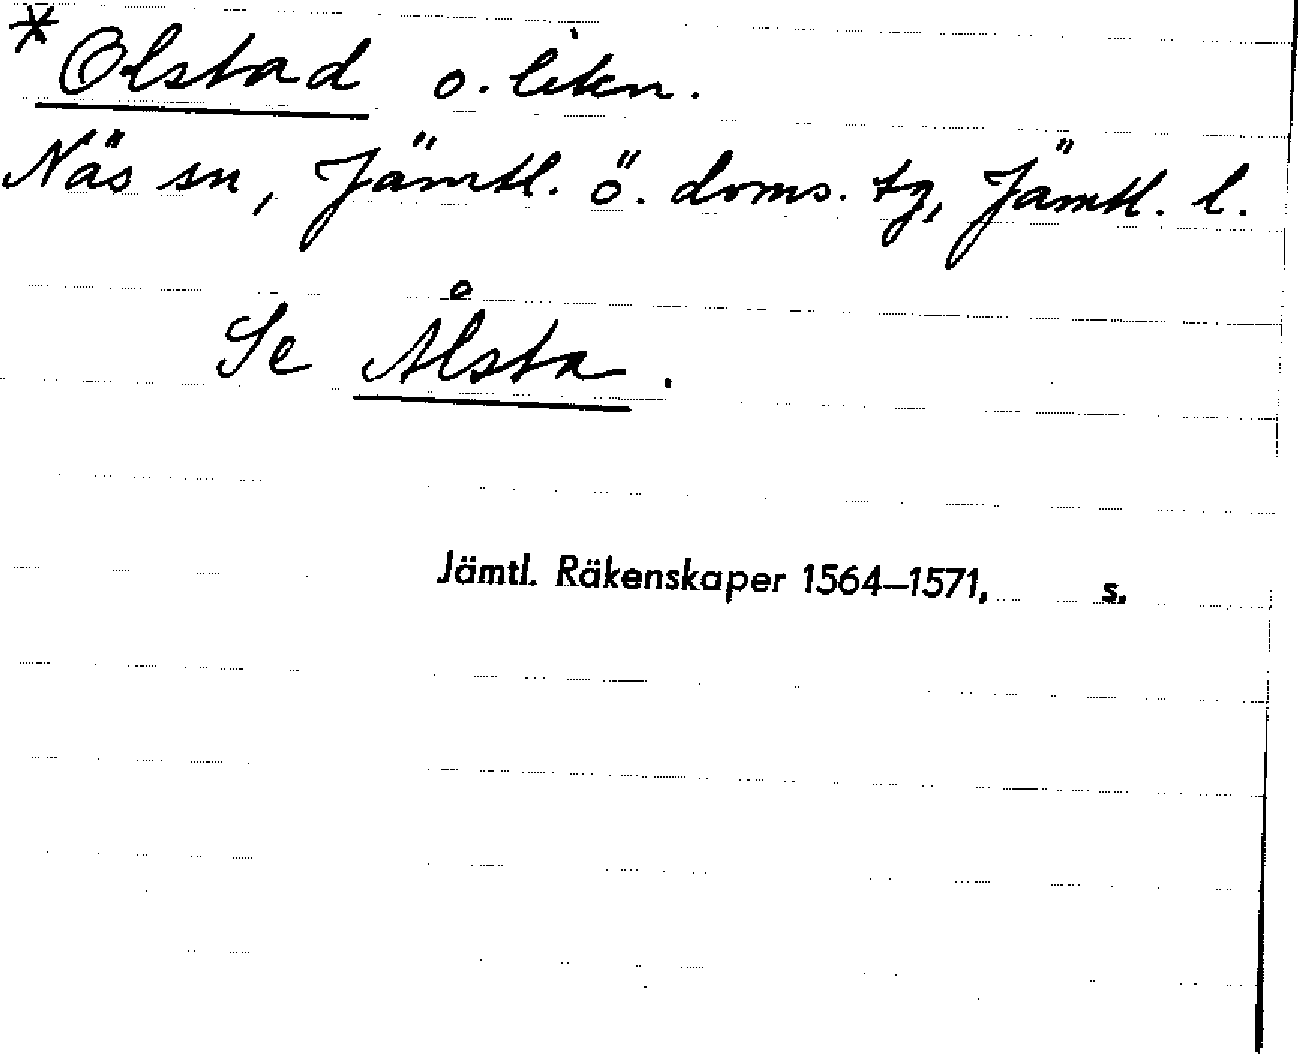 *Olstad o. likn.
Näs sn, Jämtl. ö. doms. tg, Jämtl. l.
Se Ålsta.
Jämtl. Räkenskaper 1564–1571, s.